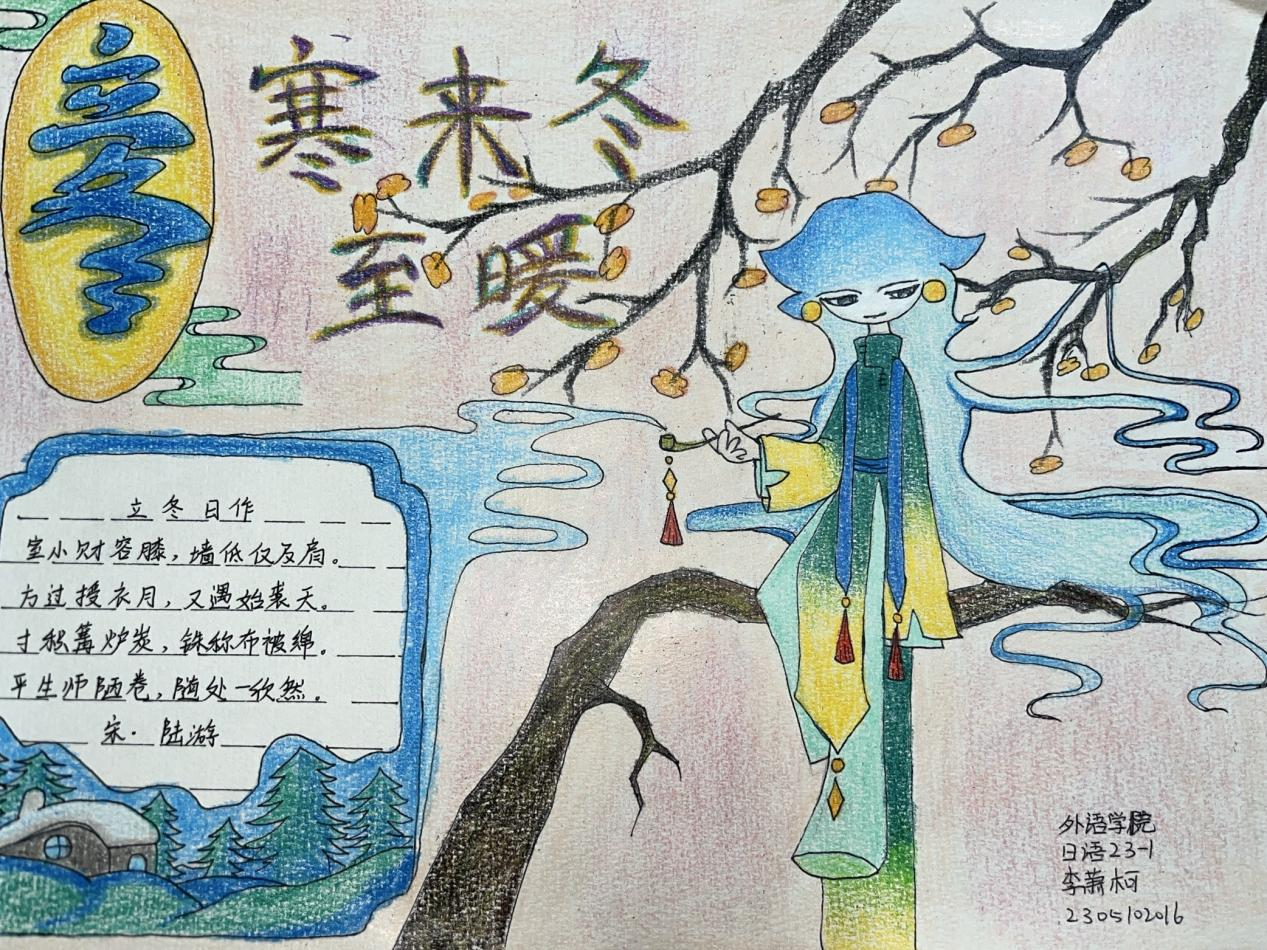 立冬
寒来冬
至暖
立冬日作
室小财容膝，墙低仅及肩。
方过授衣月，又遇始裘天。
寸积篝炉炭，铢称布被绵。
平生师陋巷，随处一欣然。
宋·陆游
外语学院
日语23-1
李萧柯
2305102016